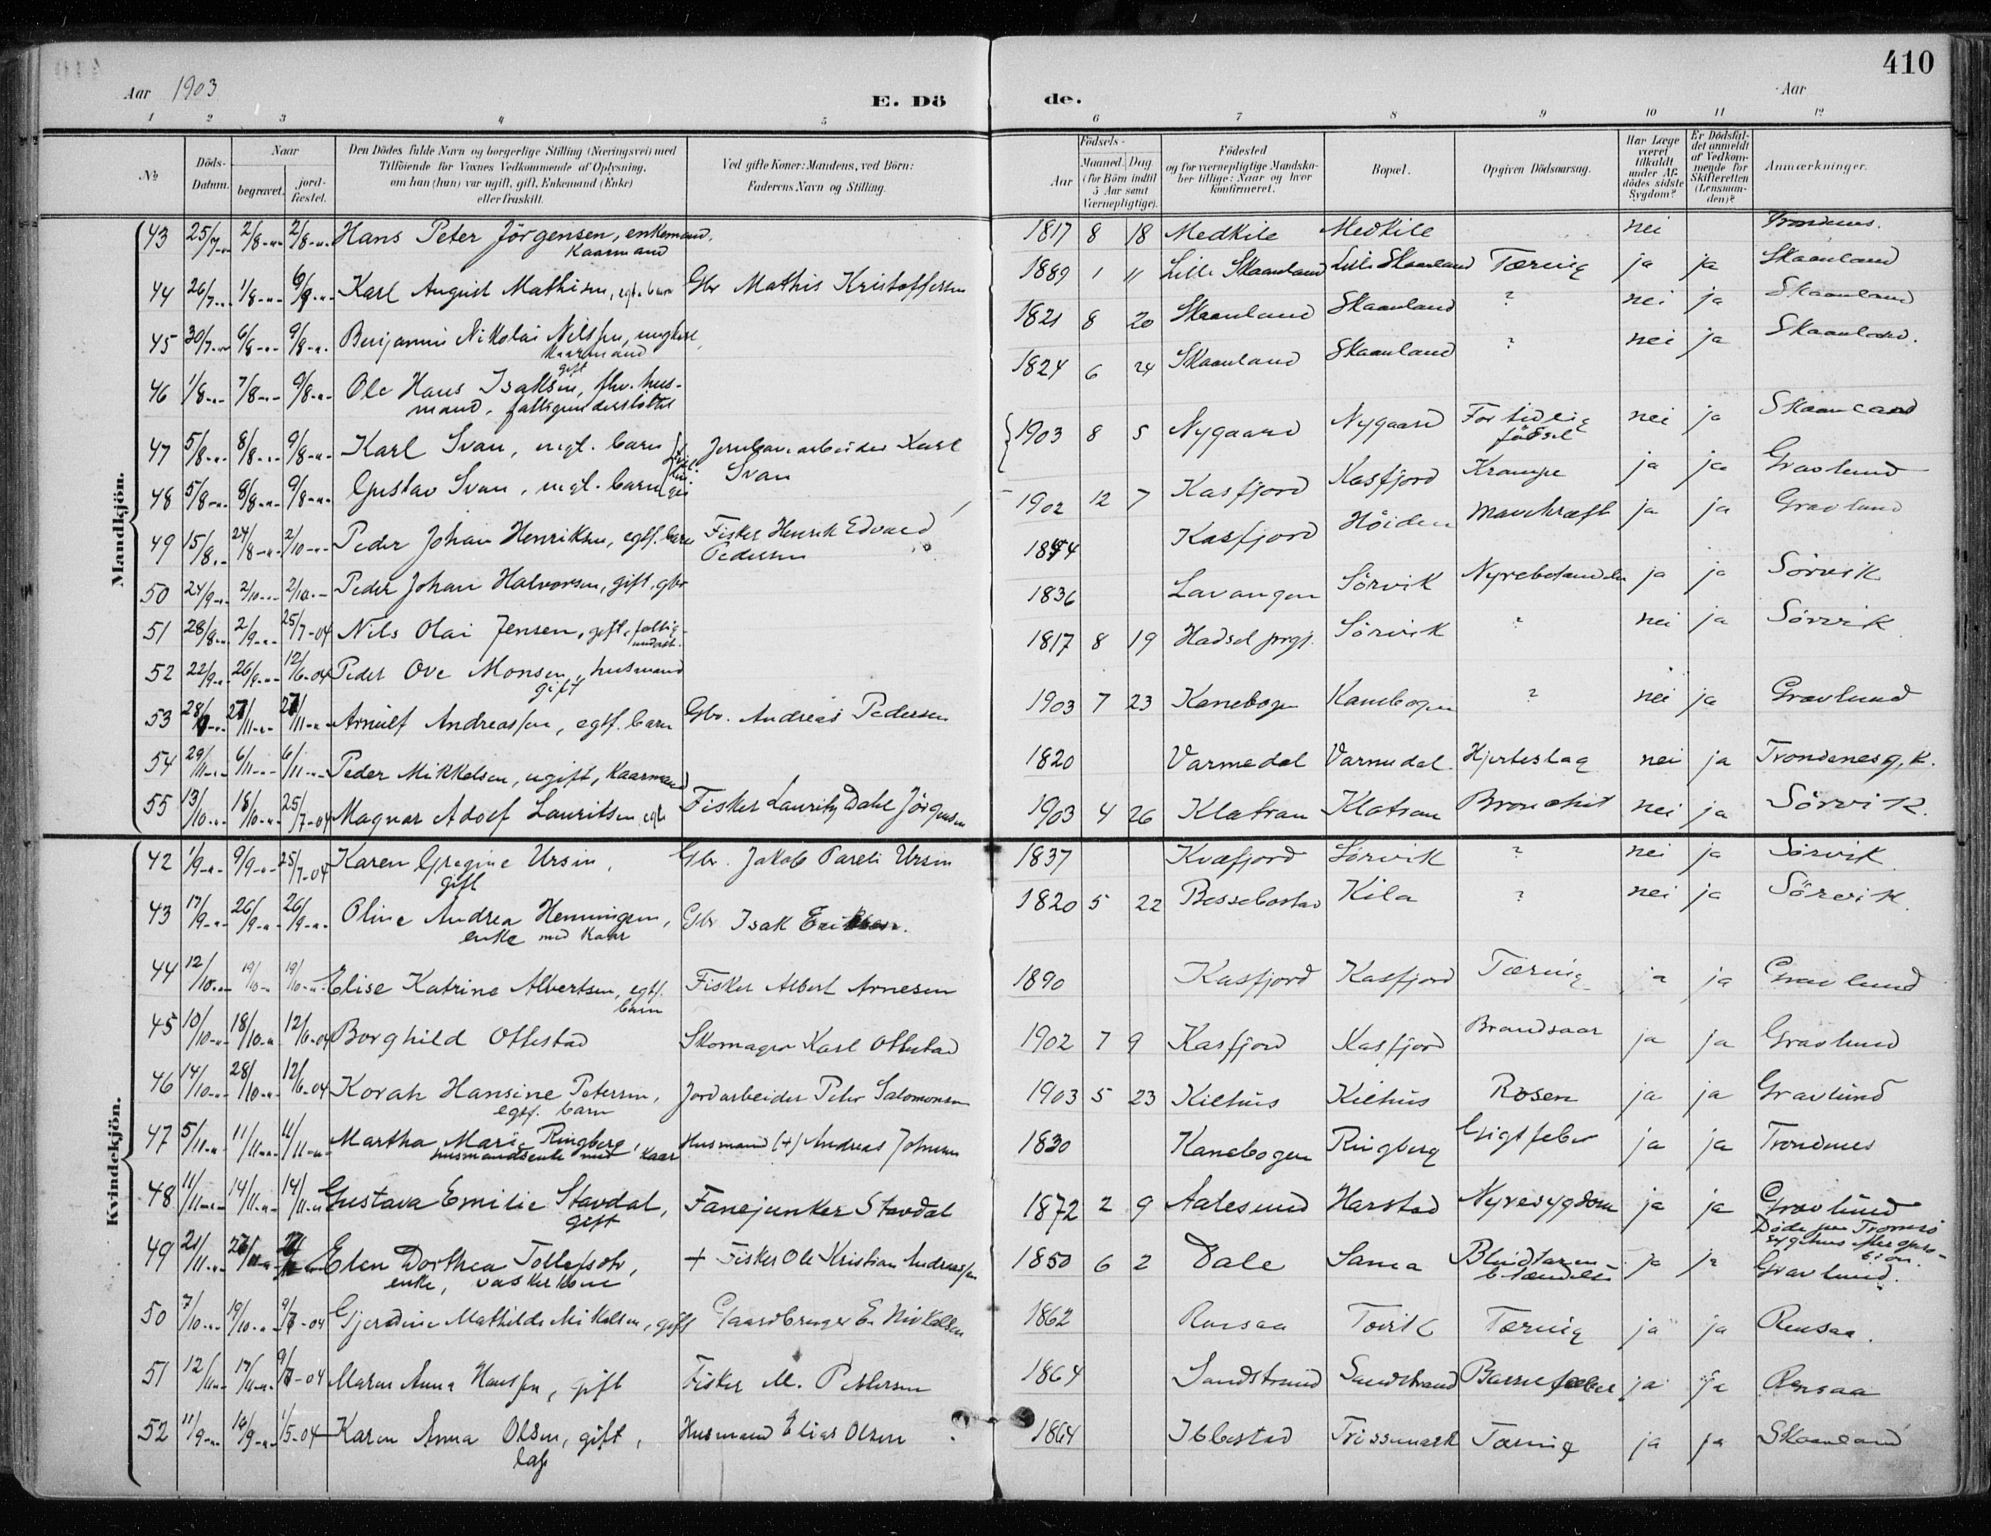 410
Aar 1903
E. Dö
de.
Aar
1 2 3 4 5 6 7 8 9 10 11 12
No
Döds-Datum.
Naar
begravet.
jord-fæstet.
Den Dödes fulde Navn og borgerlige Stilling (Næringsvei) med
Tilföiende for Voxnes Vedkommende af Oplysning,
om han (hun) var ugift, gift, Enkemand (Enke)
eller fraskilt.
Ved gifte Koner: Mandens, ved Börn:
Faderens Navn og Stilling.
Födsels-
Aar
Maaned.
Dag
(for Börn indtil
5 Aar samt
Værnepligtige).
Födested
og for værnepligtige Mandska-
ber tillige: Naar og hvor
konfirmeret.
Bopæl.
Opgiven Dödsaarsag.
Har Læge
været
tilkaldt
under Af-
dödes sidste
Sygdom?
Er Dödsfal-
det anmeldt
af Vedkom-
mende for
Skifteretten
(Lensman-
den)?
Anmærkninger.
Mandkjön.
43 25/7 2/8 2/8 Hans Peter Jörgensen, enkemand, 1817 8 18 Medkile Medkile nei Trondenes.
Kaarmand
44 26/7 1/8 6/9 Karl August Mathisen, egt. barn Gbr Mathis Kristoffersen 1889 1 11 Lille Skaanland Lille Skaanland Tæring ja ja Skaanland
45 30/7 6/8 9/8 Benjamin Nikolai Nilssen, ungkarl, 1821 8 20 Skaanland Skaanland ? nei ja Skaanland
Kaarmand
46 1/8 7/8 9/8 Ole Hans Isaksen, gift fhv. hus- 1824 6 24 Skaanland Skaanland ? nei ja Skaanland.
mand, fattigunderstöttet
47 5/8 8/8 9/8 Karl Svan, uegt. barn Jernbanearbeider Karl 1903 8 5 Nygaard Nygaard For tidlig nei ja Skaanland
födsel
48 5/8 8/8 9/8 Gustav Svan, uegt. barn Svan
1902 12 7 Kasfjord Kasfjord Krampe ja ja Gravlund
49 15/8 24/8 2/10 Peder Johan Henriksen, egtf. barn Fisker Henrik Edvard
Pedersen
1844 Kasfjord Höiden Mavekræft ja ja Gravlund
50 24/9 2/10 2/10 Peder Johan Halvorsen, gift, gbr
1836 Lavangen Sörvik ja ja Sörvik
51 28/8 2/9 25/7-04 Nils Olai Jensen, gift, fattig-
underst.
1817 8 19 Hadsel prgj. Sörvik ? nei ja Sörvik
52 22/9 26/9 12/6-04 Peder Ove Monsen, husmand
gift
53 28/9 27/11 27/11 Arnulf Andreassen, egtf. barn Gbr. Andreas Pedersen 1903 7 23 Kanebogen Kanebogen ? nei ja Gravlund
54 29/11 6/11 6/11 Peder Mikkelsen, ugift, Kaarmand 1820 Varmedal Varmedal Hjerteslag nei ja Trondenes g. K.
55 13/10 18/10 25/7-04 Magnar Adolf Lauritsen egtb Fisker Lauritz Dahl Jörgensen 1903 4 26 Klatran Klatran Bronchit nei ja Sörvik.
Kvindekjön.
42 1/9 9/9 25/7-04 Karen Gregine Ursin, Gbr. Jakob Pareli Ursin 1837 Kvæfjord Sörvik ? nei ja Sörvik
gift
43 17/9 26/9 26/9 Oline Andrea Henningsen, Gbr Isak Eriksen. 1820 5 22 Bessebostad Kila ? nei ja Sörvik.
enke med Kaar
44 12/10 19/10 19/10 Elise Katrine Albertsen, egtf. Fisker Albert Arnesen 1890 Kasfjord Kasfjord Tæring ja ja Gravlund
barn
45 10/10 18/10 12/6-04 Borghild Ottestad Skomager Karl Ottestad 1902 7 9 Kasfjord Kasfjord Brandsaar ja ja Gravlund
46 14/10 28/10 12/6-04 Korah Hansine Petersen, Jordarbeider Peter Salomonsen 1903 5 23 Kilhus Kilhus Rosen ja ja Gravlund
egtf. barn
47 5/11 11/11 11/11 Martha Marie Ringberg, Husmand (+) Andreas Johnsen 1830 Kanebogen Ringberg Gigtfeber ja ja Trondenes
husmandsenke med Kaar
48 11/11 14/11 14/11 Gustava Emilie Stavdal, Fanejunker Stavdal 1872 2 9 Aalesund Harstad Nyresygdom ja ja Gravlund
gift
Döde paa Tromsö
sygehus efter opera-
tion.
49 21/11 Elen Dorthea Tollefsdtr, + Fisker Ole Kristian Andreassen 1850 6 2 Dale Sama Blindtarm- ja ja Gravlund.
enke, vaskerkone betændelse
50 7/10 19/10 9/7-04 Gjerdine Mathilde Mikelsen, gift Gaardbruger E. Mikkelsen 1862 Rensaa Tovik Tæring ja ja Rensaa.
51 12/11 17/11 9/7-04 Maren Anna Hanssen, gift Fisker M. Pedersen 1864 Sandstrand Sandstrand Barselfeber ja ja Rensaa
52 11/9 14/9 1/5-04 Karen Anna Olsen, gift, Husmand Elias Olsen 1864 Ibbestad Trissemark Tæring ja ja Skaanland
lap